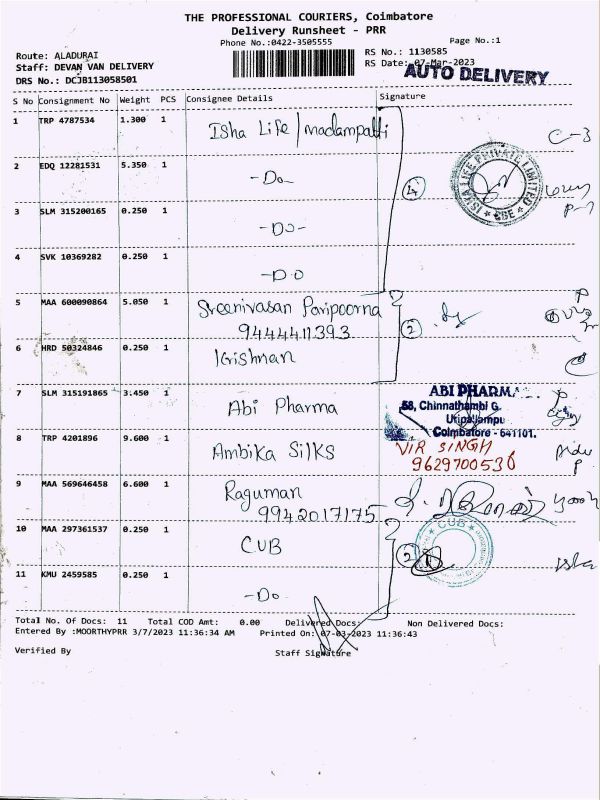 THE PROFESSIONAL COURIERS, Coimbatore
Delivery Runsheet - PRR
Phone No.:0422-3505555
Page No.:1
Route: ALADURAI
RS No.: 1130585
Staff: DEVAN VAN DELIVERY
RS Date: 07-Mar-2023
DRS No.: DCJB113058501
AUTO DELIVERY
S No Consignment No Weight PCS Consignee Details Signature
1 TRP 4787534 1.300 1 Isha Life / Madampatti
C-3
2 EDQ 12281531 5.350 1 -Do-
4
ISHA LIFE PRIVATE LIMITED
CBE
3 SLM 315200165 0.250 1 -Do-
4 SVK 10369282 0.250 1 -Do
5 MAA 600090864 5.050 1 Sreenivasan Paripoorna
9444411393
2
6 HRD 50324846 0.250 1 Krishnan
7 SLM 315191865 3.450 1 Abi Pharma
ABI PHARMA
58, Chinnathambi G.
Coimbatore - 641101.
8 TRP 4201896 9.600 1 Ambika Silks
VIR SINGH
9629700536
9 MAA 569646458 6.600 1 Raguman
9942017175
10 MAA 297361537 0.250 1 CUB
2
CUB
Isha
11 KMU 2459585 0.250 1 -Do-
Total No. Of Docs: 11 Total COD Amt: 0.00 Delivered Docs: Non Delivered Docs:
Entered By :MOORTHYPRR 3/7/2023 11:36:34 AM Printed On: 07-03-2023 11:36:43
Verified By Staff Signature